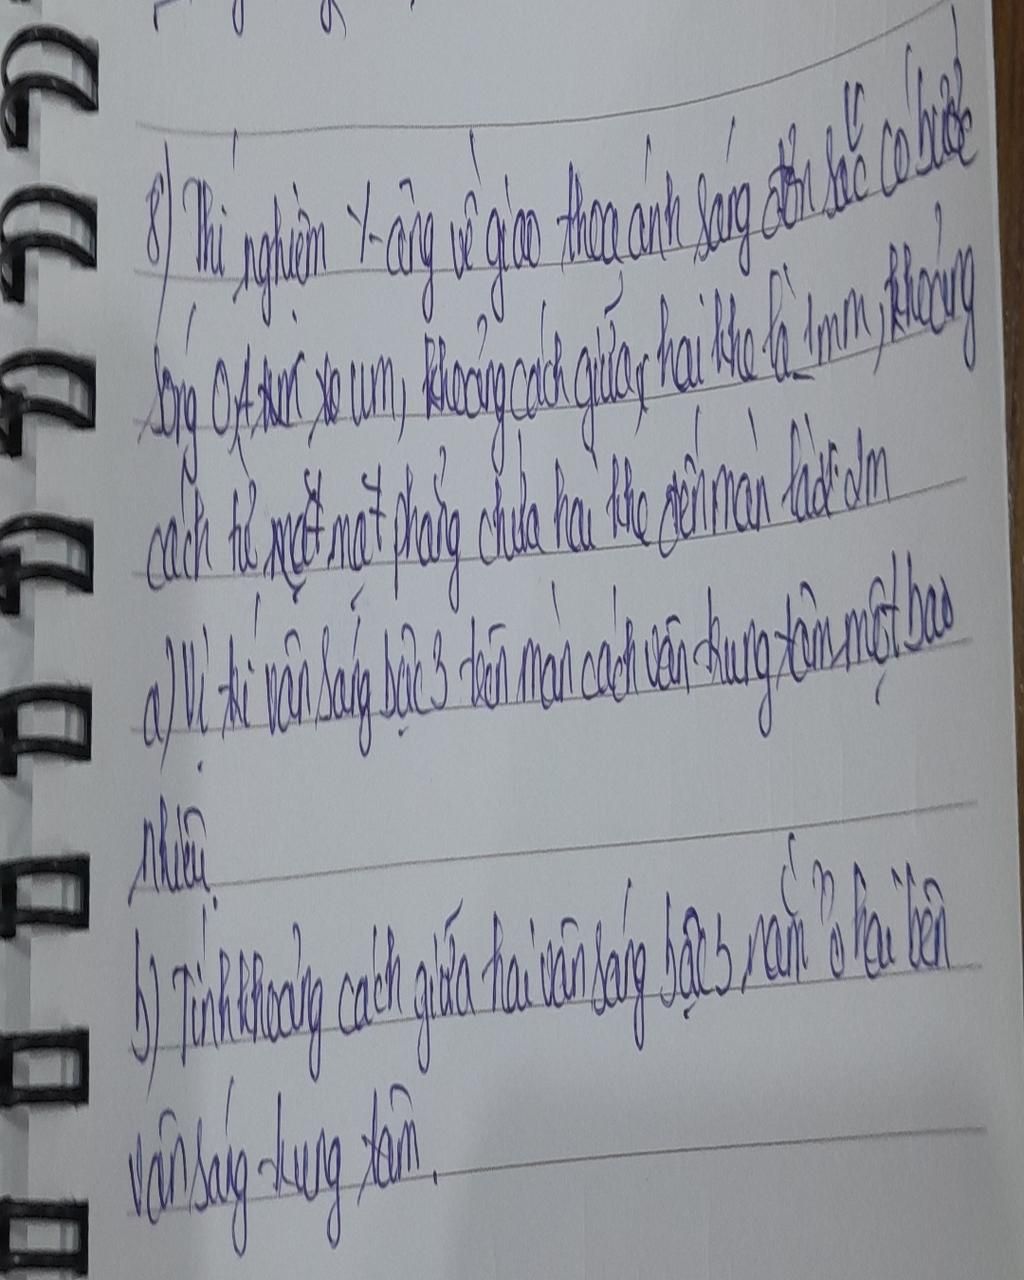 8) Thí nghiệm Y-âng về giao thoa ánh sáng đơn sắc có bước
sóng 0,4 um, khoảng cách giữa hai khe là 1mm, khoảng
cách từ mặt phẳng chứa hai khe đến màn là 2m
a) Vị trí vân sáng bậc 3 trên màn cách vân trung tâm một bao
nhiêu
b) Tính khoảng cách giữa hai vân sáng bậc 3 nằm ở hai bên
vân sáng trung tâm.